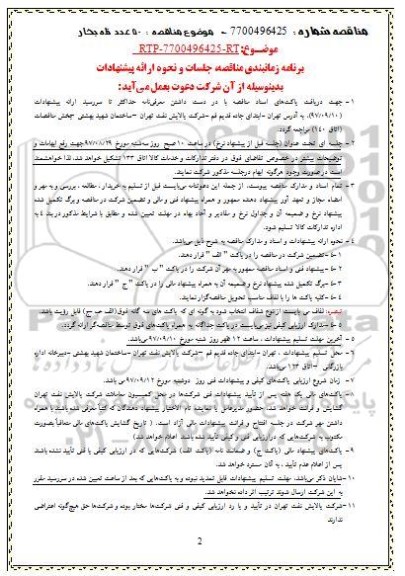 مناقصه شماره : 7700496425 - موضوع مناقصه : ۵۰ عدد تله بخار
موضوع: RTP-7700496425-RT
برنامه زمانبندی مناقصه، جلسات و نحوه ارائه پیشنهادات
بدینوسیله از آن شرکت دعوت بعمل می‌آید:
۱ - جهت دریافت پاکت‌های اسناد مناقصه با در دست داشتن معرفی‌نامه حداکثر تا سررسید ارائه پیشنهادات
(۹۷/۰۹/۱۰)، به آدرس تهران -ابتدای جاده قدیم قم -شرکت پالایش نفت تهران -ساختمان شهید بهشتی -بخش مناقصات
(اتاق ۱۴۰) مراجعه گردد.
۲ - جلسه ای تحت عنوان (جلسه قبل از پیشنهاد نرخ) در ساعت ۱۰ صبح روز سه‌شنبه مورخ ۹۷/۰۸/۲۹ جهت رفع ابهامات و
توضیحات بیشتر در خصوص تقاضای فوق در دفتر تدارکات و خدمات کالا اتاق ۱۳۳ تشکیل خواهد شد. لذا خواهشمند
است درصورت وجود هرگونه ابهام درجلسه مذکور شرکت نمایند.
۳ - تمام اسناد و مدارک مناقصه پیوست، از جمله این دعوتنامه می‌بایست قبل از تسلیم به خریدار، مطالعه، بررسی و به مهر و
امضاء مجاز و تعهد آور پیشنهاد دهنده ممهور و همراه پیشنهاد فنی و مالی و تضمین شرکت در مناقصه و برگ تکمیل شده
پیشنهاد نرخ و ضمیمه آن و جداول نرخ و مقادیر و آحاد بهاء در مهلت تعیین شده و مطابق با شرایط مذکور در بند ۴ به
اداره تدارکات کالا تسلیم شود.
۴ - نحوه ارائه پیشنهادات و اسناد و مدارک مناقصه به شرح ذیل می‌باشد.
۴-۱ -تضمین شرکت در مناقصه را در پاکت " الف " قرار دهند.
۴-۲ - پیشنهاد فنی و اسناد مناقصه ممهور به مهر آن شرکت را در پاکت " ب " قرار دهند.
۴-۳ -برگ تکمیل شده پیشنهاد نرخ و ضمیمه آن به همراه پیشنهاد مالی را در پاکت " ج " قرار دهند.
۴-۴ -کلیه پاکت ها را با لفاف مناسب تحویل مناقصه‌گزار نمایند.
تبصره: لفاف می بایست از نوع شفاف انتخاب شود به گونه ای که پاکت های سه گانه فوق(الف، ب، ج) قابل رؤیت باشد.
۴-۵ -مدارک ارزیابی کیفی نیز می‌بایست در پاکت جداگانه به همراه پاکت‌های فوق توسط مناقصه‌گر ارائه گردد.
۵ - آخرین مهلت تسلیم پیشنهادات ، ساعت ۱۲ ظهر روز شنبه مورخ ۹۷/۰۹/۱۰ می‌باشد.
۶ - محل تسلیم پیشنهادات ، تهران -ابتدای جاده قدیم قم -شرکت پالایش نفت تهران -ساختمان شهید بهشتی -دبیرخانه اداره
بازرگانی -اتاق ۱۳۳ می‌باشد.
۷ - زمان شروع ارزیابی پاکت‌های کیفی و پیشنهادات فنی روز دوشنبه مورخ ۹۷/۰۹/۱۲ می باشد.
۸ - پاکت‌های مالی یک هفته پس از تأیید پیشنهادات فنی شرکت‌ها در محل کمیسیون معاملات شرکت پالایش نفت تهران
گشایش و قرائت خواهد شد. حضور مدیرعامل یا نماینده تام الاختیار پیشنهاد دهندگان که کتباً معرفی شده باشد با همراه
داشتن مهر شرکت در جلسه افتتاح و قرائت پیشنهادات مالی آزاد است. ( تاریخ گشایش پاکت‌های مالی متعاقباً بصورت
مکتوب به شرکت‌هایی که در ارزیابی فنی و کیفی تأیید شده باشند اعلام خواهد شد)
۹ - پاکت‌های پیشنهاد مالی (پاکت ج) و ضمانت نامه (پاکت الف) شرکت‌هایی که در ارزیابی کیفی یا فنی تأیید نشده باشند
پس از اعلام عدم تأیید ، به آنان مسترد خواهد شد.
۱۰-شایان ذکر می‌باشد، مهلت تسلیم پیشنهادات قابل تمدید نبوده و به پاکت‌هایی که بعد از ساعت تعیین شده در سررسید مقرر
به این شرکت ارسال شوند ترتیب اثر داده نخواهد شد.
۱۱-شرکت پالایش نفت تهران در تأیید و یا رد ارزیابی کیفی و فنی شرکت‌ها مختار بوده و شرکت‌ها حق هیچ‌گونه اعتراضی
ندارند
2